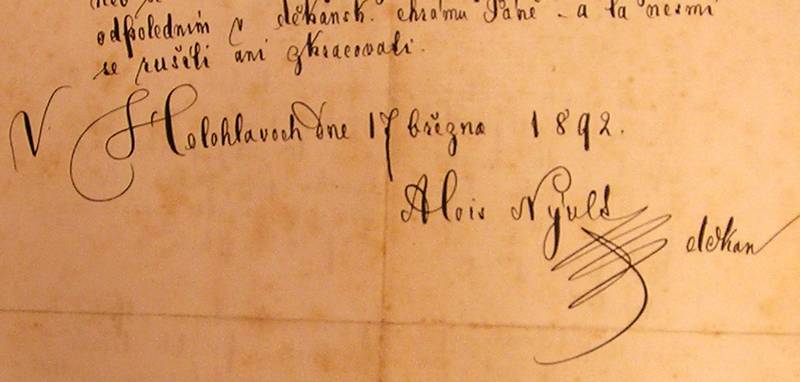 odpoledním v děkansk. chrámu Páně - a ta nesmí
se rušiti ani zkracovati.
V Holohlavech dne 17 března 1892.
Alois
děkan